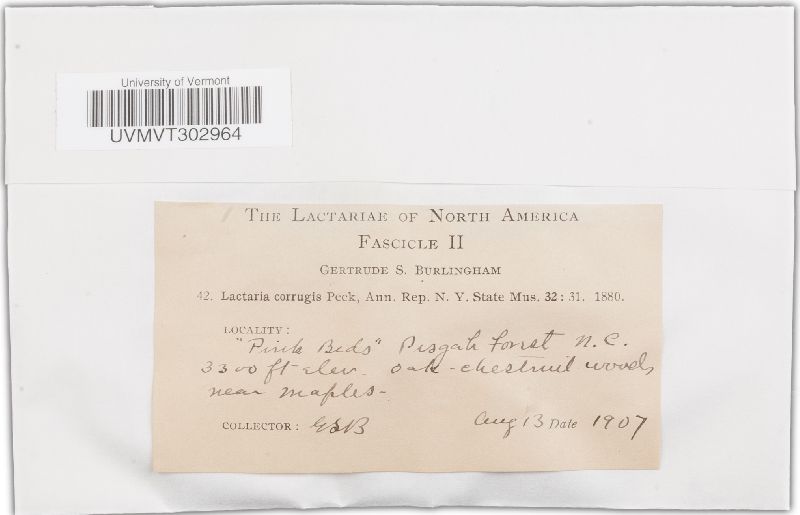 University of Vermont
UVMVT302964
The Lactariae of North America
Fascicle II
Gertrude S. Burlingham
42. Lactaria corrugis Peck, Ann. Rep. N. Y. State Mus. 32: 31. 1880.
Locality:
"Pink Beds" Pisgah Forest N.C.
3300 ft elev. oak-chestnut woods
near maples-
Collector: GSB Aug 13 Date 1907